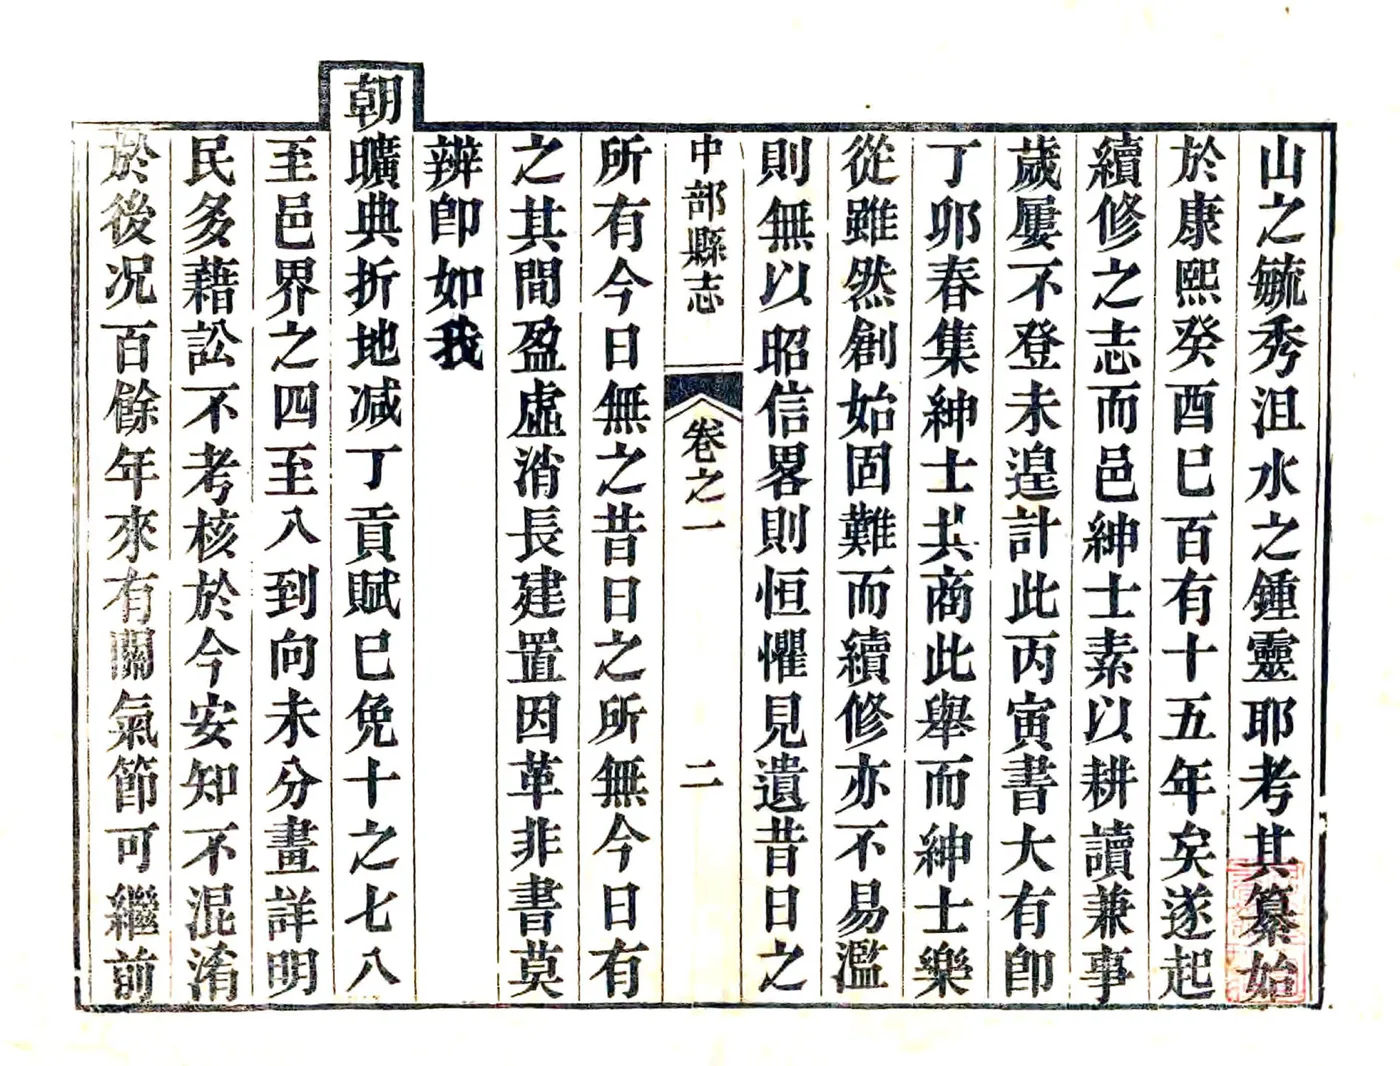 山之毓秀沮水之鍾靈耶考其纂始
於康熙癸酉巳百有十五年矣遂起
續修之志而邑紳士素以耕讀兼事
歲屢不登未遑計此丙寅書大有卽
丁卯春集紳士共商此舉而紳士樂
從雖然創始固難而續修亦不易濫
則無以昭信畧則恒懼見遺昔日之
中部縣志
卷之一
二
所有今日無之昔日之所無今日有
之其間盈虛消長建置因革非書莫
辨卽如我
朝曠典折地減丁貢賦巳免十之七八
至邑界之四至八到向未分畫詳明
民多藉訟不考核於今安知不混淆
於後况百餘年來有關氣節可繼前